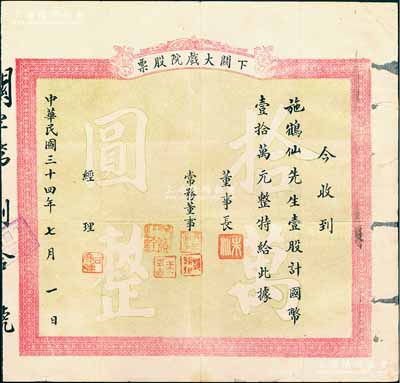 下關大戲院股票
今收到
施鶴仙先生壹股計國幣
壹拾萬元整特給此據
董事長
常務董事
經理
中華民國三十四年七月一日
拾萬
圓整